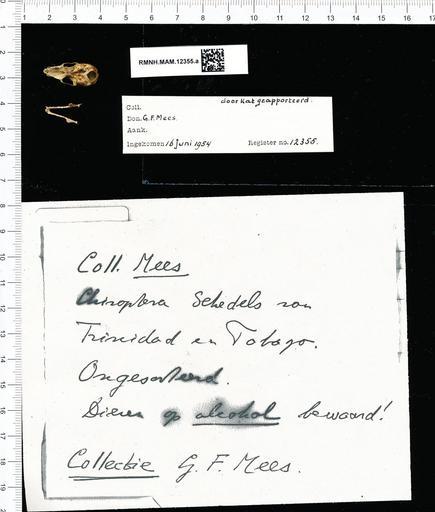 RMNH.MAM.12355.a
door Kat geapporteerd.
Coll.
Don. G.F. Mees.
Aank.
Ingekomen 16 juni 1954 Register no. 12355.
Coll. Mees
Chiroptera Schedels van
Trinidad en Tobago.
Ongesorteerd.
Dieren op alcohol bewaard!
Collectie G. F. Mees.